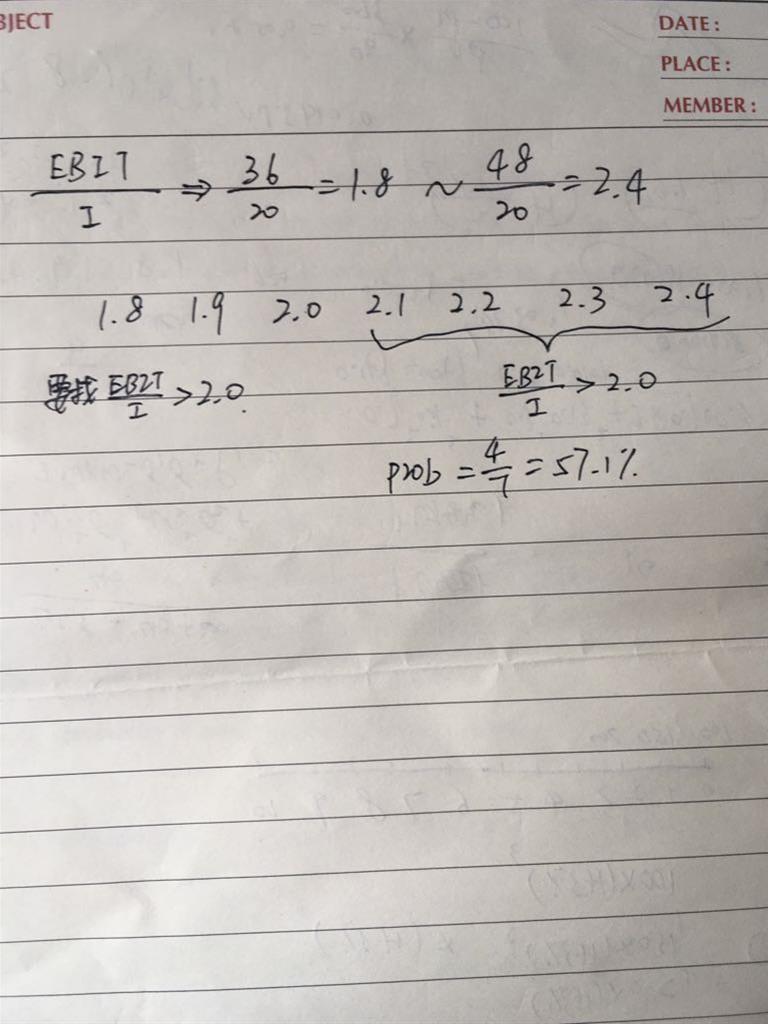 BJECT
DATE :
PLACE :
MEMBER :
EBIT/I ⇒ 36/20 = 1.8 ~ 48/20 = 2.4
1.8 1.9 2.0 2.1 2.2 2.3 2.4
要找 EBIT/I > 2.0.
EBIT/I > 2.0
prob = 4/7 = 57.1%